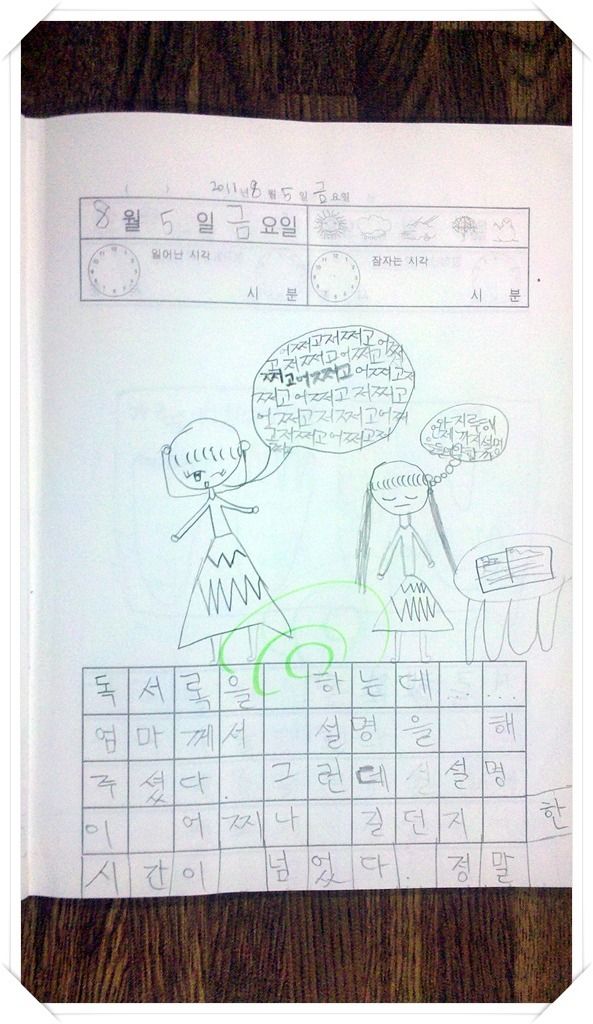 2011년 8월 5일 금요일
8월 5일 금요일
일어난 시각
시 분
잠자는 시각
시 분
어쩌고저쩌고어쩌
고저쩌고어쩌고저
쩌고어쩌고
언제까지설명
독서록을 하는데……
엄마께서 설명을 해
주셨다. 그런데 설명
이 어찌나 길던지 한
시간이 넘었다. 정말